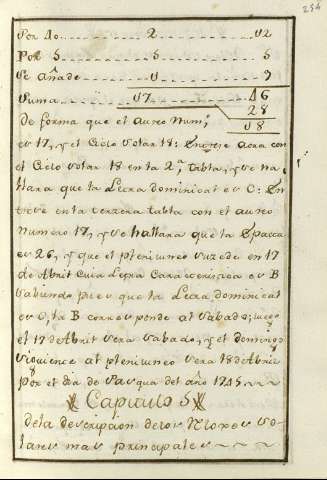 254
Por 40 .......... 2 ......... 12
Por 5 ........... 5 ......... 5
Se añade ........ 0 ......... 9
Suma ........ 17 ........ 46
28
18
de forma que el aureo Num;
es 17, y el Ciclo solar 18: Entrese aora con
el Ciclo solar 18 en la 2.ª tabla, y se ha
llara que la Letra dominical es C: En
trese en la terzera tabla con el aureo
numero 17, y se hallara que la Epacta
es 26, y que el plenilunio suzede en 17
de Abril cuia Letra Caracteristica es B
sabiendo pues que la Letra dominical
es C, la B corresponde al sabado; luego
el 17 de Abril sera sabado, y el domingo
siguiente al plenilunio sera 18 de Abril
por el dia de Pasqua del año 1745
Capitulo 5
de la descripcion de los Reloxes so-
lares mas principales